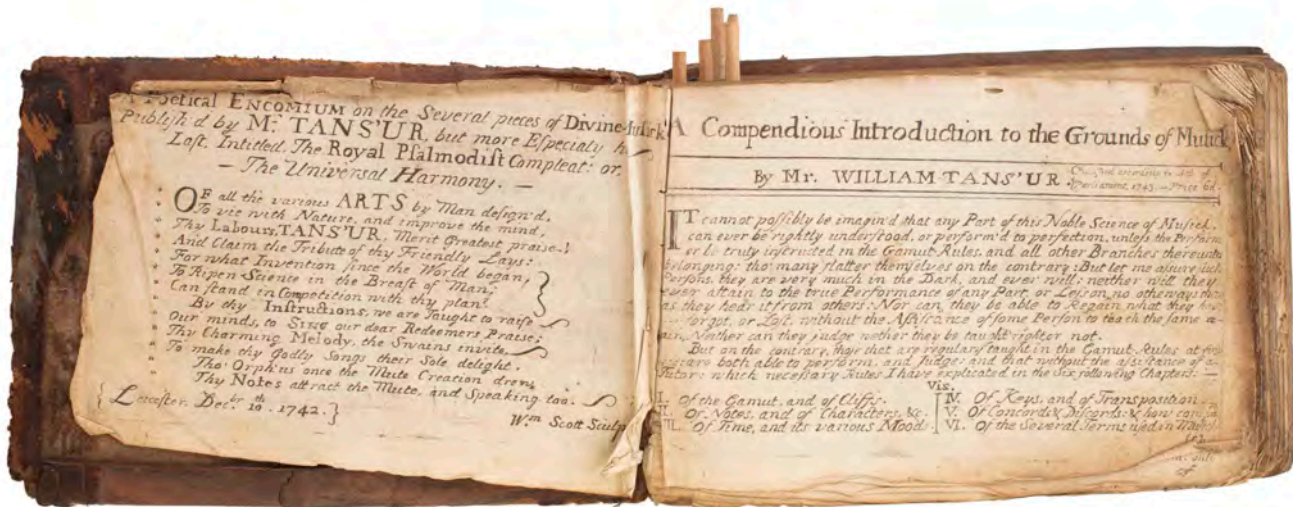 A Poetical ENCOMIUM on the Several pieces of Divine-Musick
Publish'd by Mr. TANS'UR, but more Especialy his
Last. Intitled, The Royal Psalmodist Compleat: or,
— The Universal Harmony. —
OF all the various ARTS by Man design'd,
To vie with Nature, and improve the mind,
Thy Labours, TANS'UR, Merit Greatest praise!
And Claim the Tribute of thy Friendly Lays:
For what Invention since the World began,
To Ripen Science in the Breast of Man;
Can stand in Competition with thy plan!
By thy Instructions, we are Taught to raise
Our minds, to SING our dear Redeemers Praise:
Thy Charming Melody, the Swains invite,
To make thy Godly Songs their Sole delight.
Tho' Orph'us once the Mute Creation drew,
Thy Notes attract the Mute, and Speaking too.
{Leicester. Decbr. 10th. 1742.}
Wm Scott Sculp
A Compendious Introduction to the Grounds of Musick,
By Mr. WILLIAM TANS'UR.
according to Act of
Parliament, 1743. — Price 6d.
IT cannot possibly be imagin'd that any Part of this Noble Science of Musick,
can ever be rightly understood, or perform'd to perfection, unless the Perform
er be truly instructed in the Gamut Rules, and all other Branches thereunto
belonging; tho' many flatter themselves on the contrary: But let me assure such
Persons, they are very much in the Dark, and ever will; neither will they
ever attain to the true Performance of any Part, or Lesson, no otherways than
as they hear it from others: Nor can they be able to Regain what they
forgot, or Lost, without the Assistance of some Person to teach the same a-
gain, Neither can they judge wether they be taught right or not.
But on the contrary, those that are regulary taught in the Gamut Rules at first
are both able to perform, and Judge; and that without the assistance of a
Tutor: which necessary Rules I have explicated in the Six following Chapters: —
Viz.
I. Of the Gamut, and of Cliffs.
II. Of Notes, and of Characters, &c.
III. Of Time, and its various Mood:
IV. Of Keys, and of Transposition.
V. Of Concords & Discords: & how
VI. Of the Several Terms used in Musick.
of